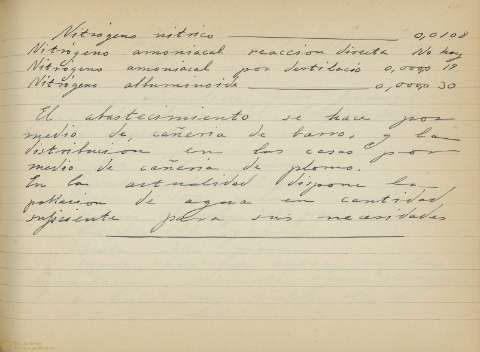 Nitrógeno nítrico ——— 0,0108
Nitrógeno amoniacal reaccion directa No hay
Nitrógeno amoniacal por destilació 0,0000 19
Nitrógeno albuminoide ——— 0,0000 30
El abastecimiento se hace por
medio de, cañeria de barro, y la
distribucion en las casas por
medio de cañeria de plomo.
En la actualidad dispone la
poblacion de agua en cantidad
suficiente para sus necesidades